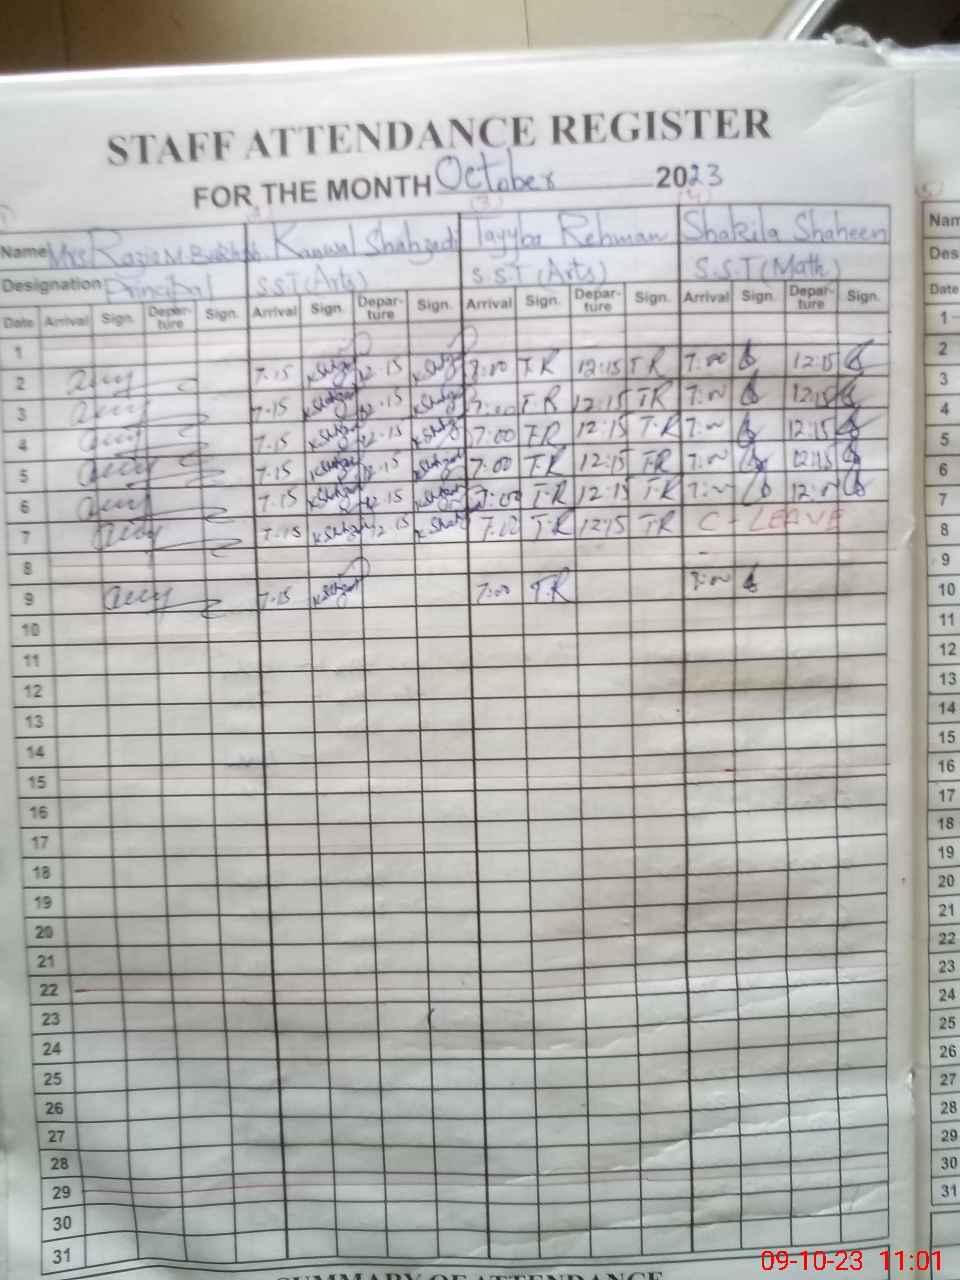 STAFF ATTENDANCE REGISTER
FOR THE MONTH October 2023
(1) (2) (3) (4) (5)
Name Mrs Razia M. Kanwal Shahzadi Tayyba Rehman Shakila Shaheen Nam
Designation Principal S.S.T (Arts) S.S.T (Arts) S.S.T (Math) Des
Date Arrival Sign. Depar-ture Sign. Arrival Sign. Depar-ture Sign. Arrival Sign. Depar-ture Sign. Arrival Sign. Depar-ture Sign. Date
1 1
2 7.15 12.15 7:00 T.R 12:15 T.R 7:00 12:15 2
3 7.15 12.15 7:00 T.R 12:15 TR 7:00 12:15 3
4 7.15 12.15 7:00 T.R 12:15 T.R 7:00 12:15 4
5 7.15 12.15 7:00 T.R 12:15 T.R 7:00 12:15 5
6 7.15 12.15 7:00 T.R 12:15 T.R 7:00 6
7 7.15 12.15 T.R 12:15 T.R C - LEAVE 7
8 8
9 7.15 7:00 T.R 7:00 9
10 10
11 11
12 12
13 13
14 14
15 15
16 16
17 17
18 18
19 19
20 20
21 21
22 22
23 23
24 24
25 25
26 26
27 27
28 28
29 29
30 30
31 31
SUMMARY OF ATTENDANCE
09-10-23 11:01